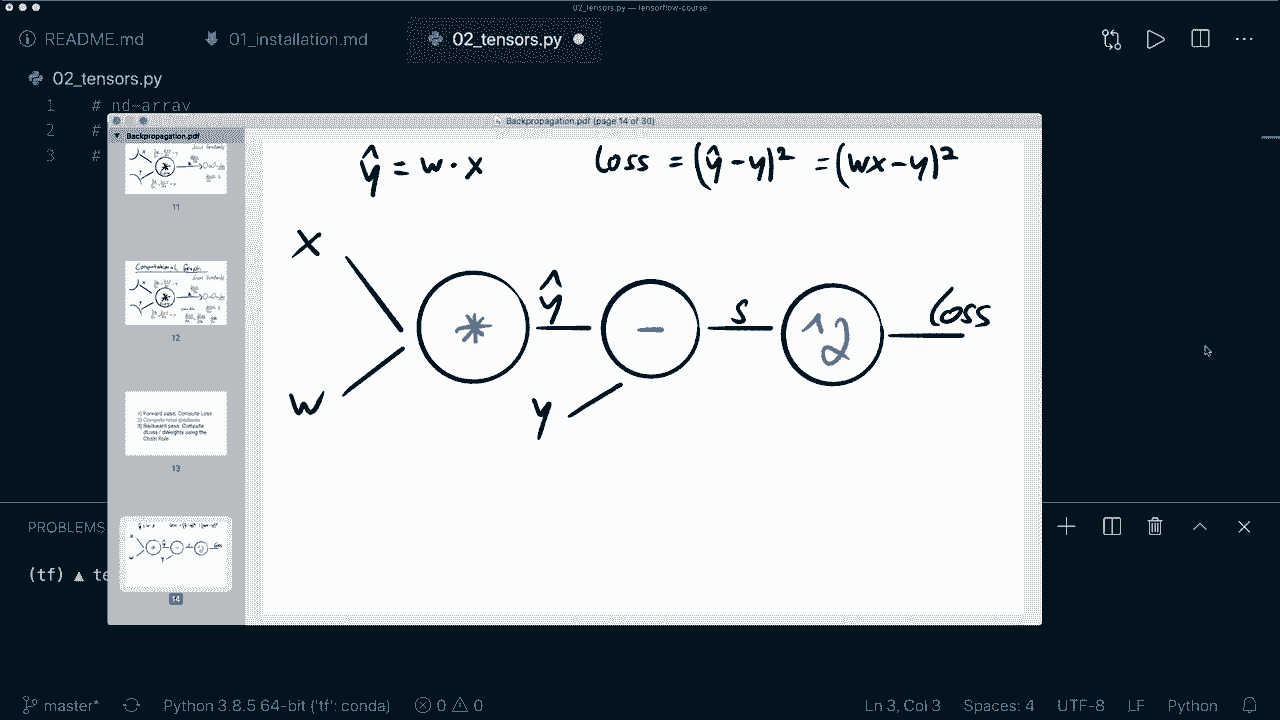 02_tensors.py — tensorflow-course
README.md
01_installation.md
02_tensors.py
02_tensors.py
1 # nd-array
2 #
3 #
Backpropagation.pdf (page 14 of 30)
Backpropagation.pdf
ŷ = w · x
Loss = (ŷ - y)² = (wx - y)²
x
*
ŷ
-
s
^2
Loss
w
y
11
Computational Graph
12
1) Forward pass: Compute Loss
2) Compute local gradients
3) Backward pass: Compute
dLoss / dWeights using the
Chain Rule
13
14
PROBLEMS
(tf) ▲ te
master*
Python 3.8.5 64-bit ('tf': conda)
0
0
Ln 3, Col 3
Spaces: 4
UTF-8
LF
Python